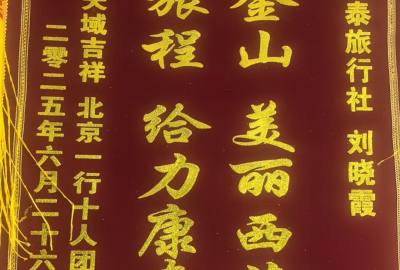 泰旅行社 刘晓霞
金山 美丽西
旅程 给力康
域吉祥 北京一行十人团
二零二五年六月二十六